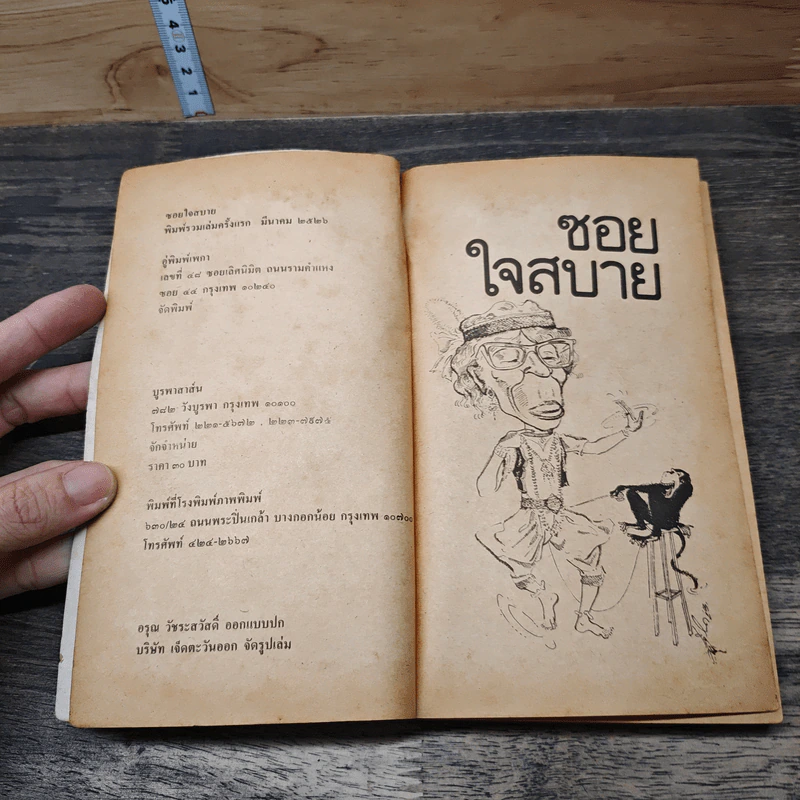 5
4
3
2
1
ซอยใจสบาย
พิมพ์รวมเล่มครั้งแรก มีนาคม ๒๕๒๖
คู่พิมพ์เพกา
เลขที่ ๔๘ ซอยเลิศนิมิต ถนนรามคำแหง
ซอย ๔๔ กรุงเทพ ๑๐๒๔๐
จัดพิมพ์
บูรพาสาส์น
๗๘๒ วังบูรพา กรุงเทพ ๑๐๑๐๐
โทรศัพท์ ๒๒๑-๕๖๗๒ , ๒๒๓-๗๙๗๕
จัดจำหน่าย
ราคา ๓๐ บาท
พิมพ์ที่โรงพิมพ์ภาพพิมพ์
๖๓๐/๒๔ ถนนพระปิ่นเกล้า บางกอกน้อย กรุงเทพ ๑๐๗๐๐
โทรศัพท์ ๔๒๔-๒๖๖๗
อรุณ วัชระสวัสดิ์ ออกแบบปก
บริษัท เจ็ดตะวันออก จัดรูปเล่ม
ซอย
ใจสบาย